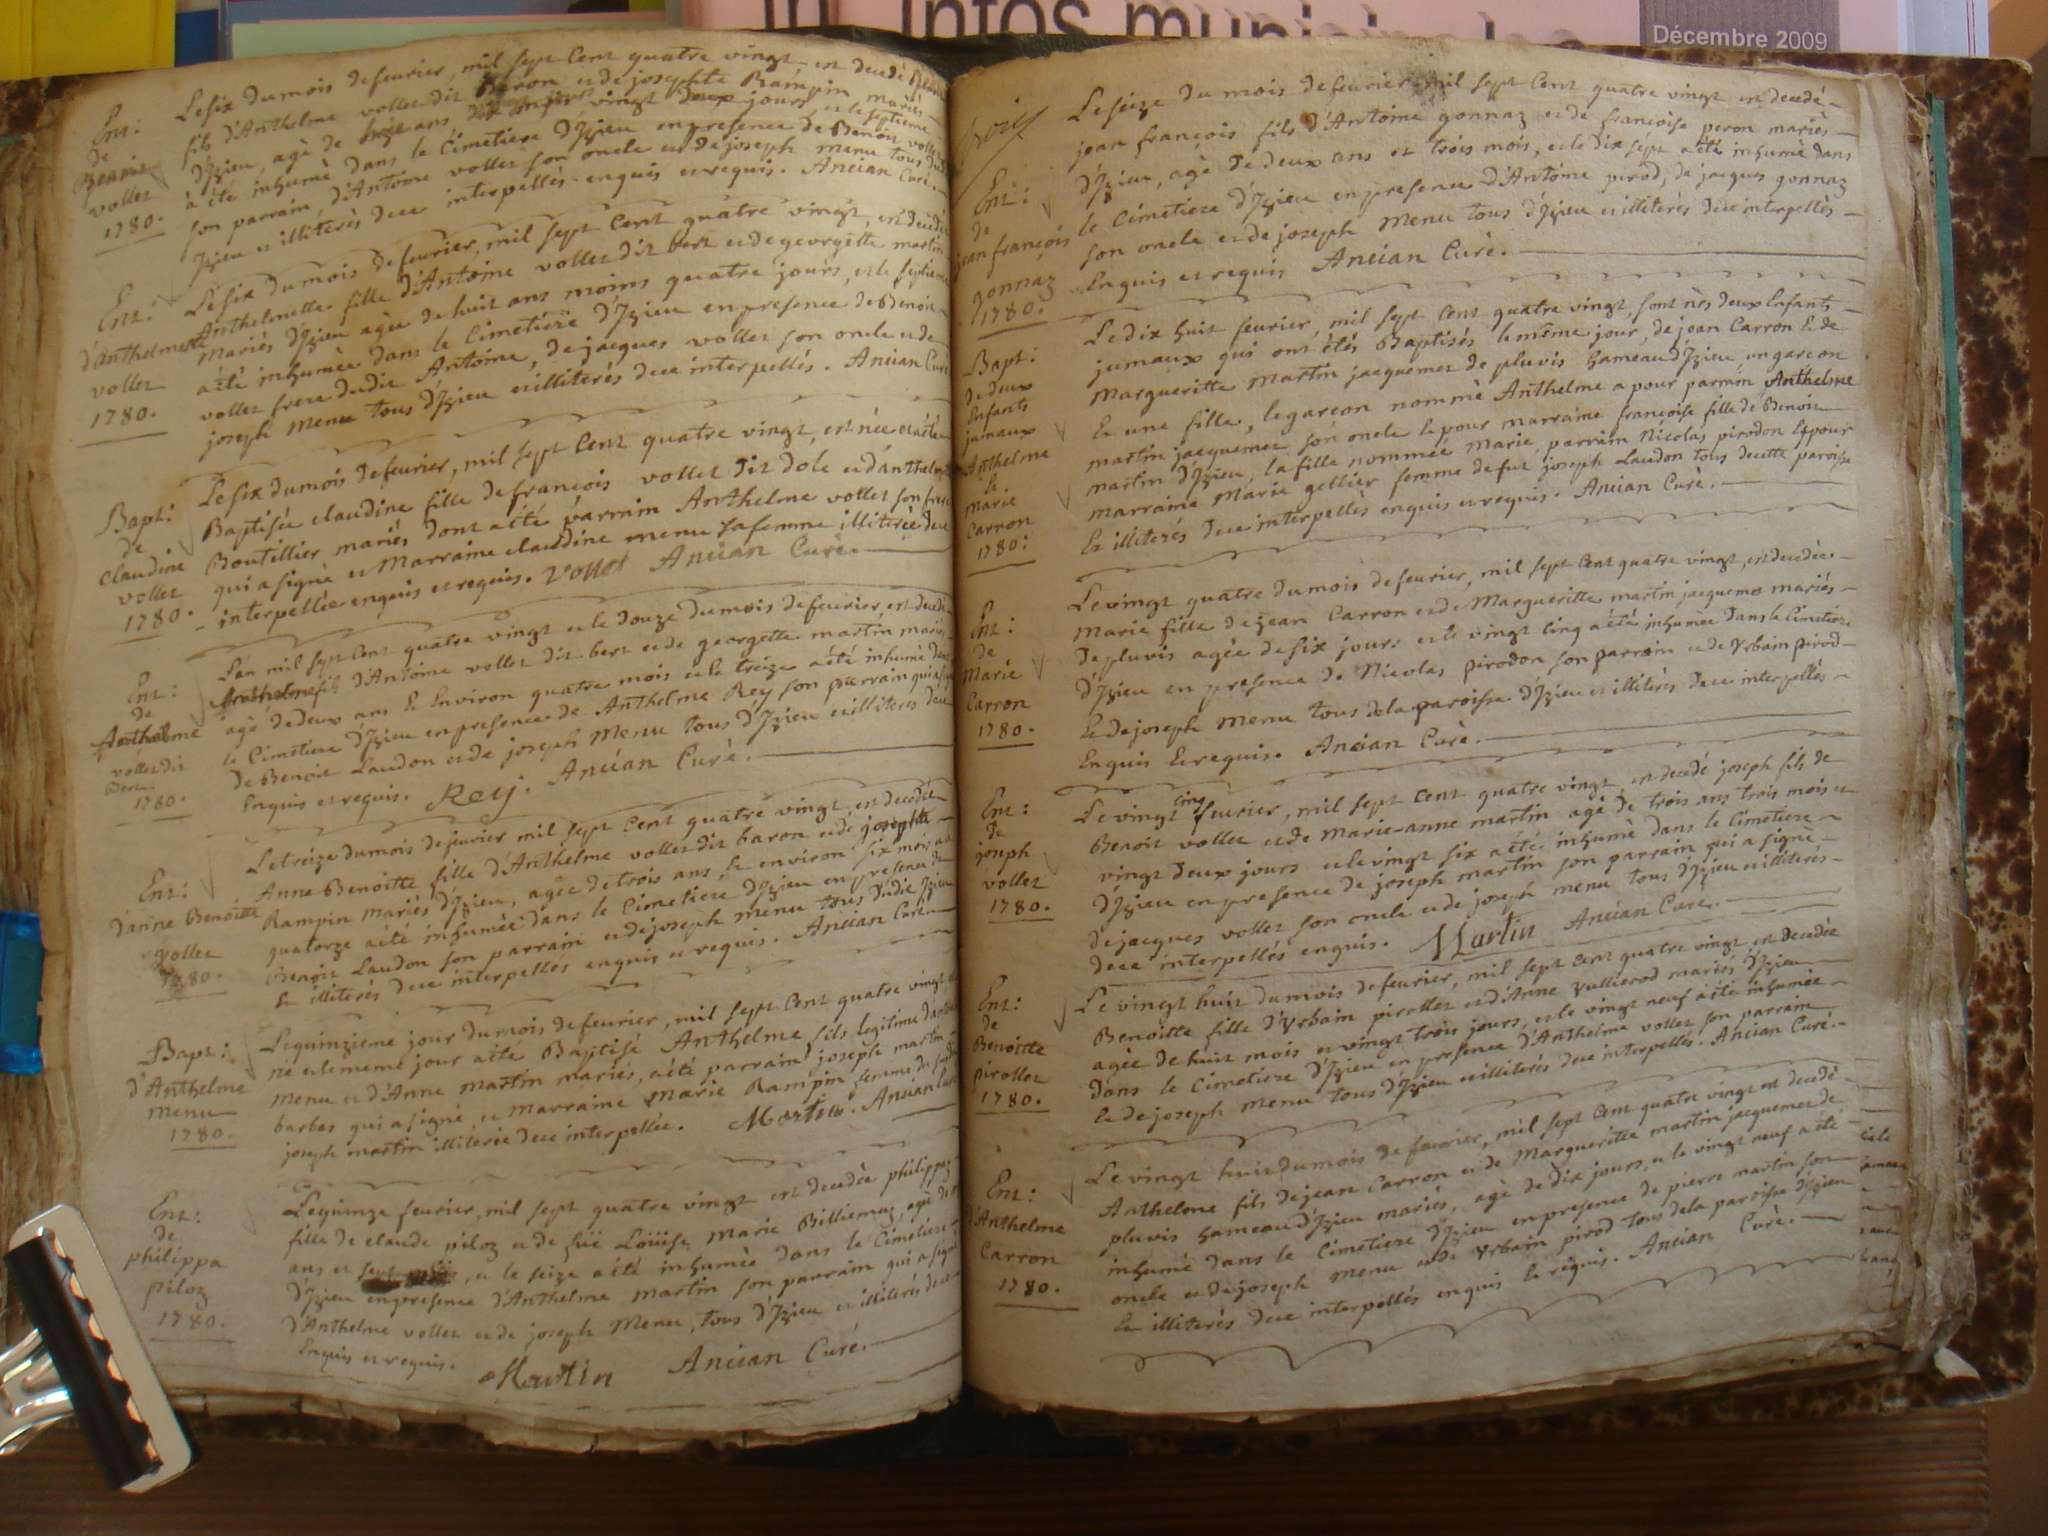 infos municipales
Décembre 2009
Ent:
de
Benoit
vollet
1780.
Le six du mois de feurier, mil sept Cent quatre vingt est decedè Benoit
fils d'Anthelme vollet dit Baron et de josephte Rampin mariès
d'Izieu, agè de ans vingt deux jours, et le septieme
à ètè inhumè dans le Cimetiere d'Izieu en presence de Benoit vollet
son parrain, d'Antoine vollet son oncle et de joseph menu tous dud
Izieu et illiterès de ce interpellès enquis et requis. Ancian Curè.
Ent:
d'anthelmette
vollet
1780.
Le six du mois de feurier, mil sept Cent quatre vingt, est decedèe
Anthelmette fille d'Antoine vollet dit bert et de georgette martin
mariès d'Izieu agèe de huit ans moins quatre jours, et le septieme
a ètè inhumèe dans le Cimetiere d'Izieu en presence de Benoit
vollet frere dudit Antoine, de jacques vollet son oncle et de
joseph menu tous d'Izieu et illiterès de ce interpellès. Ancian Curè
Bapt:
de
claudine
vollet
1780.
Le six du mois de feurier, mil sept Cent quatre vingt, est nèe et a ètè
Baptisèe claudine fille de francois vollet dit dole et d'anthelmette
Boutillier mariès dont a ètè parrain Anthelme vollet son frere
qui a signè et Marraine claudine menu sa femme illiterèe de ce
interpellèe enquis et requis. Vollet Ancian Curè.
Ent:
de
Anthelme
vollet dit
bert.
1780.
L'an mil sept Cent quatre vingt et le douze du mois de feurier, est decedè
Anthelme fils d'Antoine vollet dit bert et de georgette martin mariès
agè de deux ans & Environ quatre mois et le treize a ètè inhumè dans
le Cimetiere d'Izieu en presence de Anthelme Rey son parrain qui a signè
de Benoit Laudon et de joseph menu tous d'Izieu et illiteres de ce
Enquis et requis. Rey. Ancian Curè.
Ent:
d'anne Benoitte
vollet
1780.
Le treize du mois de feurier mil sept Cent quatre vingt, est decedèe
Anne Benoitte fille d'Anthelme vollet dit baron et de josephte
Rampin mariès d'Izieu, agèe de trois ans, & environ six mois et le
quatorze a ètè inhumèe dans le Cimetiere d'Izieu en presence de
Benoit Laudon son parrain et de joseph menu tous dudit Izieu
& illiterès de ce interpellès enquis et requis. Ancian Curè.
Bapt:
d'Anthelme
menu
1780.
Le quinzieme jour du mois de feurier, mil sept Cent quatre vingt est
nè et le meme jour a ètè Baptisè Anthelme fils legitime d'antoine
menu et d'Anne martin mariès, a ètè parrain joseph martin
barbas qui a signè, et marraine marie Rampin femme du susdit
joseph martin illiterèe de ce interpellèe. Martin. Ancian Curè
Ent:
de
philippa
piloz
1780.
Le quinze feurier, mil sept quatre vingt est decedèe philippa
fille de claude piloz et de fuë Loüise marie Billiemaz, agèe de
ans et , et le seize a ètè inhumèe dans le Cimetiere
d'Izieu en presence d'Anthelme martin son parrain qui a signè
d'Anthelme vollet et de joseph Menu, tous d'Izieu et illiterès de ce
Enquis et requis. Martin Ancian Curè.
Ent:
de
jean françois
gonnaz
1780.
Le seize du mois de feurier mil sept Cent quatre vingt est decedè
jean françois fils d'Antoine gonnaz et de françoise peron mariès
d'Izieu, agè de deux ans et trois mois, et le dix sept a ètè inhumè dans
le Cimetiere d'Izieu en presence d'Antoine pirod, de jacques gonnaz
son oncle et de joseph menu tous d'Izieu et illiterès de ce interpellès
Enquis et requis Ancian Curè.
Bapt:
de deux
Enfants
jumaux
Anthelme
&
marie
Carron
1780:
Le dix huit feurier, mil sept Cent quatre vingt, sont nès deux Enfants
jumaux qui ont ètès Baptisès le mème jour, de jean Carron & de
Margueritte martin jacquemet de pluvis hameau d'Izieu, un garcon
& une fille, le garcon nommè Anthelme a pour parrain Anthelme
martin jacquemet son oncle & pour marraine françoise fille de Benoit
martin d'Izieu, la fille nommèe Marie, parrain Nicolas pirodon & pour
marraine Marie gellier femme de fut joseph Laudon tous de cette paroisse
& illiterès de ce interpellès enquis et requis. Ancian Curè.
Ent:
de
Marie
Carron
1780.
Le vingt quatre du mois de feurier, mil sept Cent quatre vingt, est decedèe
Marie fille de jean Carron et de Margueritte martin jacquemet mariès
de pluvis agèe de six jours et le vingt cinq a ètè inhumèe dans le Cimetiere
d'Izieu en presence de Nicolas pirodon son parrain et de Urbain pirod
& de joseph menu tous de la paroisse d'Izieu et illiterès de ce interpellès
Enquis & requis. Ancian Curè.
Ent:
de
joseph
vollet
1780.
Le vingt cinq feurier, mil sept Cent quatre vingt, est decedè joseph fils de
Benoit vollet et de marie-anne martin agè de trois ans trois mois et
vingt deux jours et le vingt six a ètè inhumè dans le Cimetiere
d'Izieu en presence de joseph martin son parrain qui a signè
de jacques vollet son oncle et de joseph menu tous d'Izieu et illiterès
de ce interpellès enquis. Martin Ancian Curè.
Ent:
de
Benoitte
pirollet
1780.
Le vingt huit du mois de feurier, mil sept Cent quatre vingt, est decedèe
Benoitte fille d'Urbain pirollet et d'Anne vullierod mariès d'Izieu
agèe de huit mois et vingt trois jours, et le vingt neuf a ètè inhumèe
dans le Cimetiere d'Izieu en presence d'Anthelme vollet son parrain
& de joseph menu tous d'Izieu et illiterès de ce interpellès. Ancian Curè.
Ent:
d'Anthelme
Carron
1780.
Le vingt huit du mois de feurier, mil sept Cent quatre vingt est decedè
Anthelme fils de jean Carron et de Margueritte martin jacquemet de
pluvis hameau d'Izieu mariès, agè de dix jours, et le vingt neuf a ètè
inhumè dans le Cimetiere d'Izieu en presence de pierre martin son
oncle et de joseph menu et de Urbain pirod tous de la paroisse d'Izieu
& illiterès de ce interpellès enquis & requis. Ancian Curè.